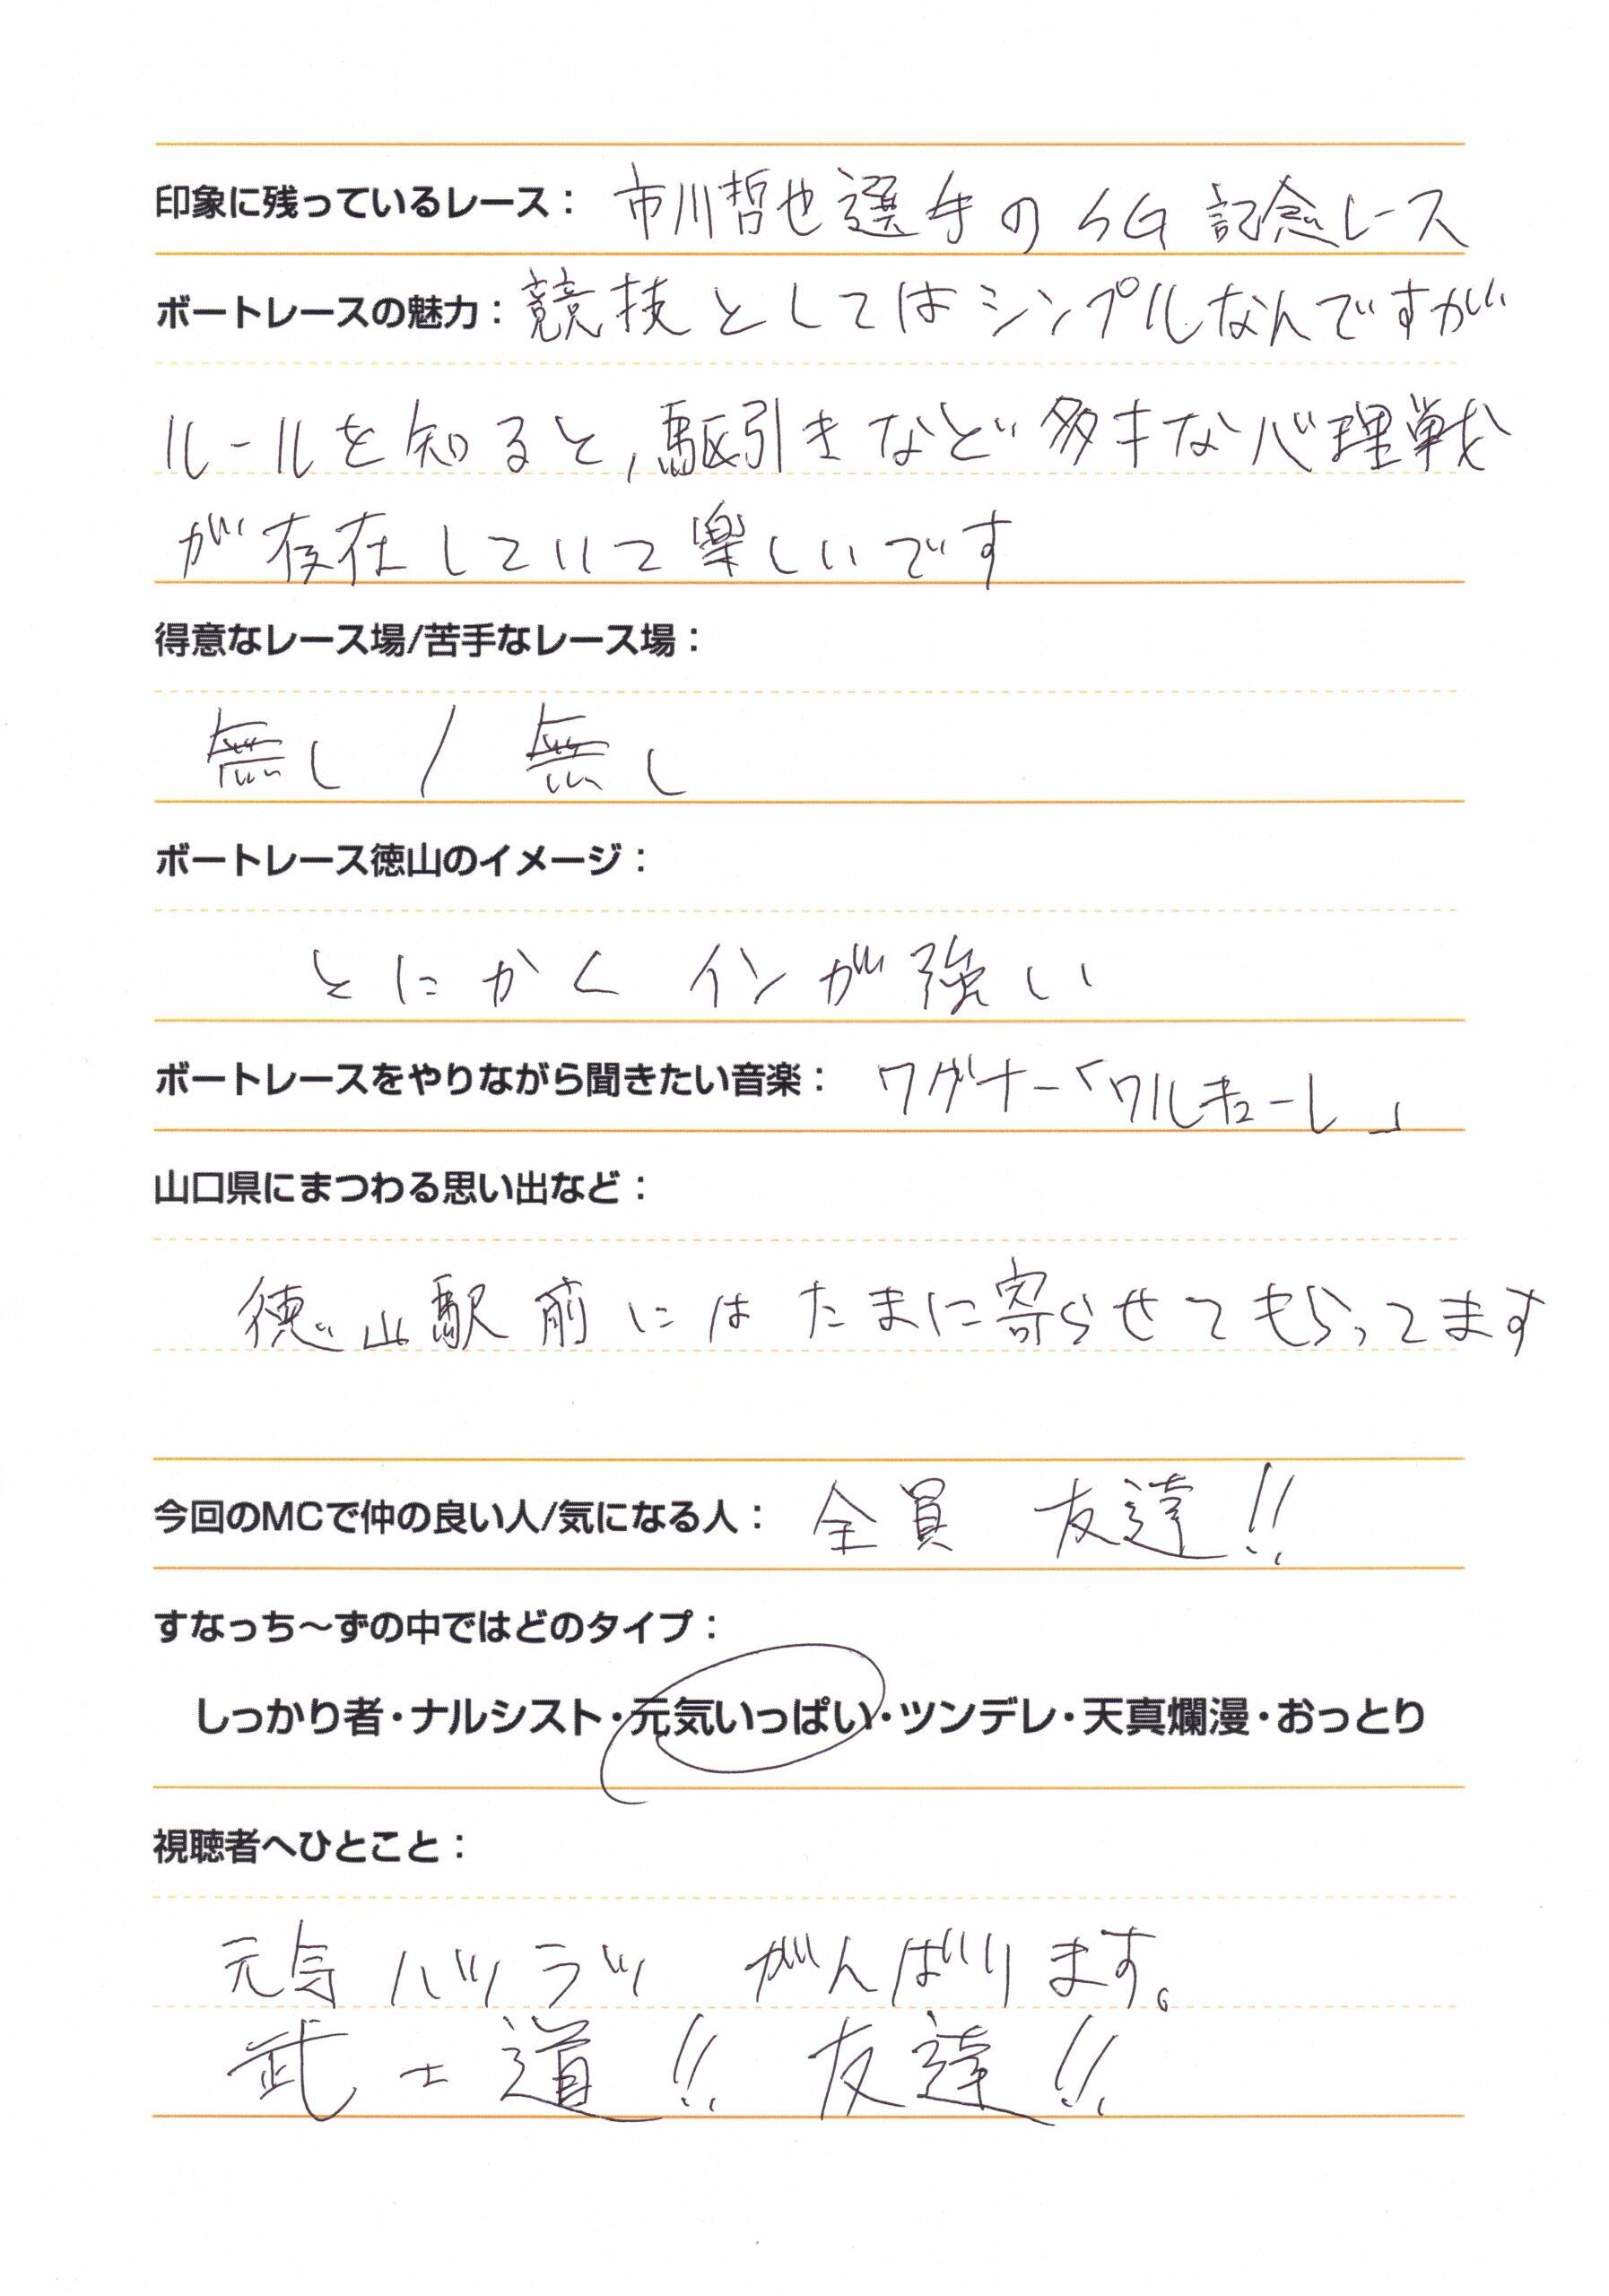 印象に残っているレース：市川哲也選手のSG記念レース
ボートレースの魅力：競技としてはシンプルなんですが
ルールを知ると,駆引きなど多才な心理戦
が存在していて楽しいです
得意なレース場/苦手なレース場：
無し / 無し
ボートレース徳山のイメージ：
とにかくインが強い
ボートレースをやりながら聞きたい音楽：ワグナー「ワルキューレ」
山口県にまつわる思い出など：
徳山駅前にはたまに寄らせてもらってます
今回のMCで仲の良い人/気になる人：全員 友達!!
すなっち〜ずの中ではどのタイプ：
しっかり者・ナルシスト・元気いっぱい・ツンデレ・天真爛漫・おっとり
視聴者へひとこと：
元気ハツラツ がんばります。
武士道!! 友達!!